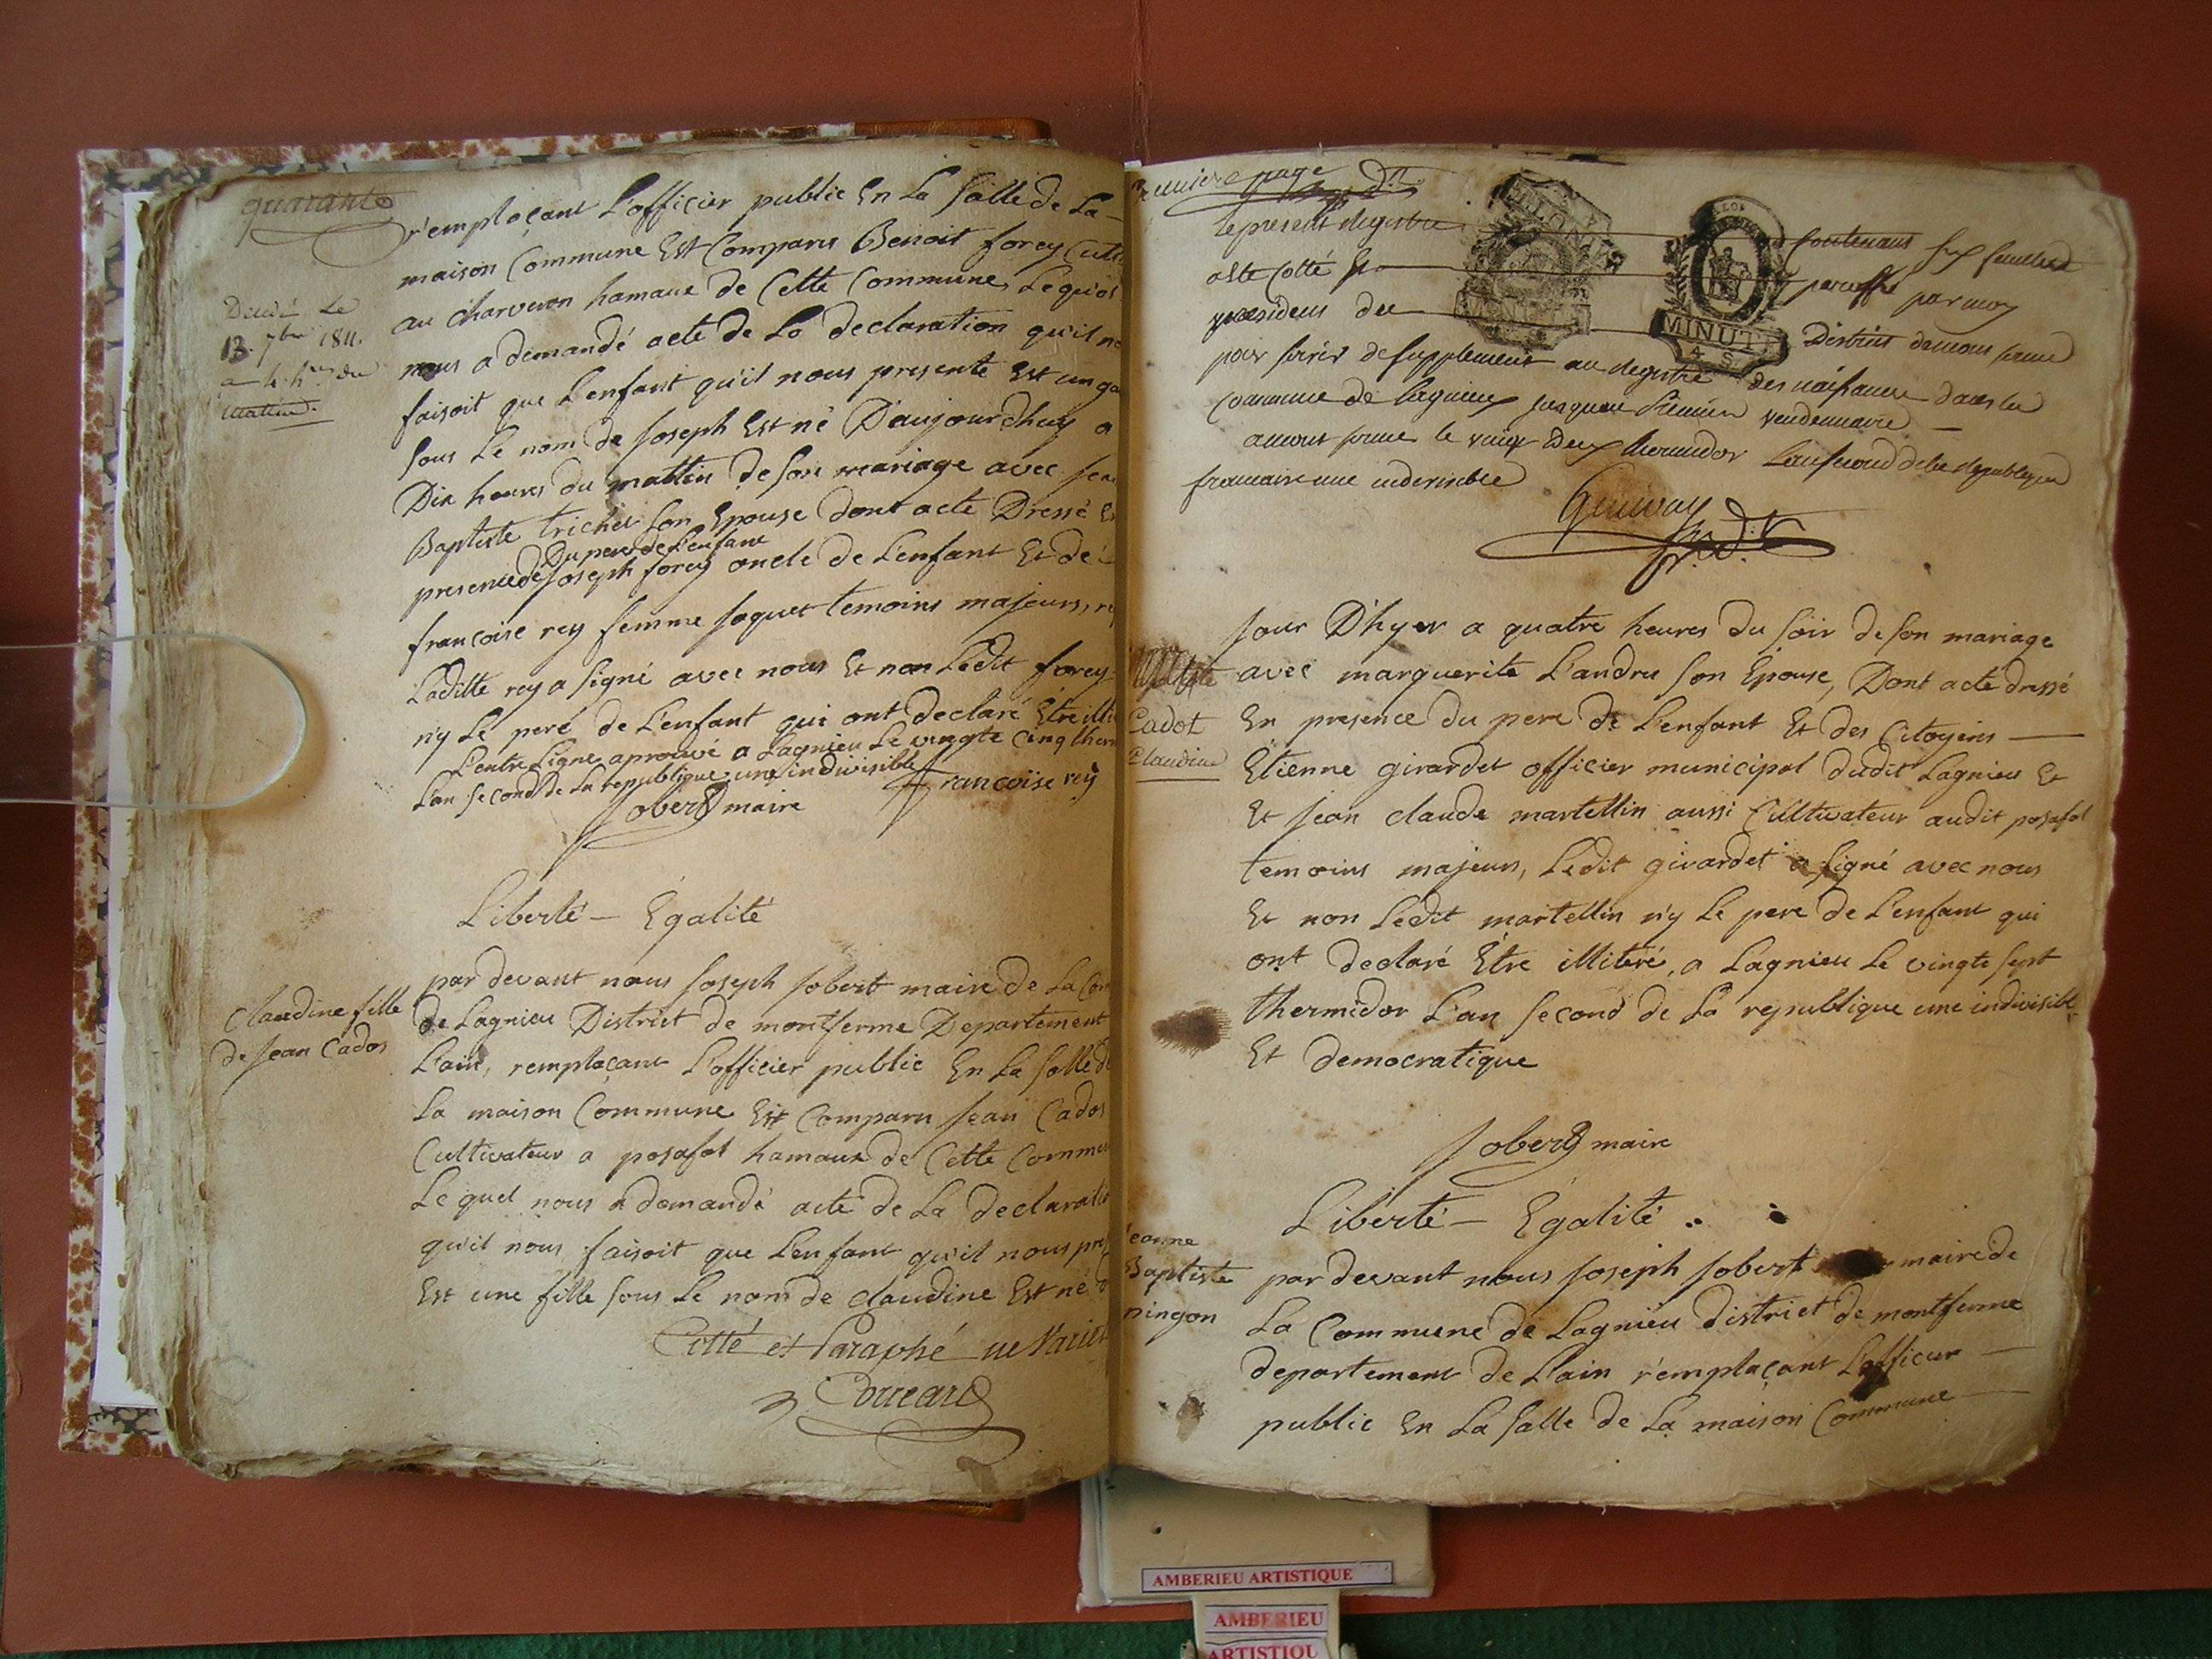 quarante
remplaçant L'officier public En La Salle de La
maison Commune Est Comparu Benoit forey
au charveron hamaux de Cette Commune Lequel
nous a demandé acte de La declaration qu'il
faisoit que L'enfant qu'il nous presente Est un
Sous Le nom de Joseph Est né D'aujourdhuy a
Dix heures du mattin de Son mariage avec
Baptiste trichet Son Epouse dont acte Dressé
Du pere de L'enfant
presence de Joseph forey oncle de L'enfant Et de
francoise rey femme Jaquet temoins majeurs,
Laditte rey a Signé avec nous Et non Ledit forey
n'y Le pere de L'enfant qui ont declaré Etre
L'entre Ligne aprouvé a Lagnieu Le vingte cinq
L'an Second de La republique une indivisible
francoise rey
Jobert maire
Décédé Le
13. 7bre 1811.
a 4. hres du
matin.
Liberté — Egalité
Claudine fille
de Jean Cados
par devant nous Joseph Jobert maire de La
de Lagnieu District de montferme Departement
L'ain, remplaçant L'officier public En La Salle de
La maison Commune Est Comparu Jean Cados
Cultivateur a posafol hamaux de Cette
Le quel nous a demandé acte de La
qu'il nous faisoit que L'enfant qu'il nous
Est une fille Sous Le nom de claudine Est né
Cotté et Paraphé ne Varietur
page
le present Registre contenant six feuillets
a été cotté et paraffé par moy
president du District de mont ferme
MINUTE
MINUTE
4 S
pour servir de supplement au registre des naissances dans la
commune de Lagnieu jusqu'au premier vendemiaire
a mont ferme le vingt deux thermidor L'an second de la republique
francaise une indivisible
Jour D'hyer a quatre heures du Soir de Son mariage
avec marguerite L'andru Son Epouse, Dont acte dressé
En presence du pere de L'enfant Et des Citoyens
Etienne girardet officier municipal dudit Lagnieu Et
Et Jean claude martellin aussi Cultivateur audit posafol
temoins majeurs, Ledit girardet a Signé avec nous
Et non Ledit martellin n'y Le pere de L'enfant qui
ont declaré Etre illiteré, a Lagnieu Le vingte Sept
thermidor L'an Second de La republique une indivisible
Et democratique
Cadot
Claudine
Jobert maire
Liberté — Egalité
Jeanne
Baptiste
ningon
par devant nous Joseph Jobert maire de
La Commune de Lagnieu district de montferme
departement de L'ain remplaçant L'officier
public En La Salle de La maison Commune
AMBERIEU ARTISTIQUE
AMBERIEU
ARTISTIQU